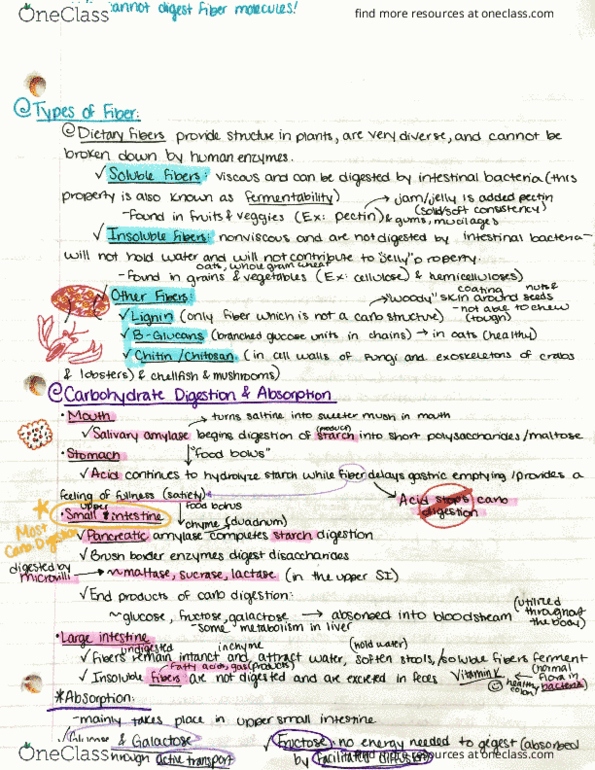 OneClass
find more resources at oneclass.com
cannot digest fiber molecules!
Types of Fiber:
Dietary fibers provide structure in plants, are very diverse, and cannot be
broken down by human enzymes.
✓ Soluble Fibers: viscous and can be digested by intestinal bacteria (this
property is also known as fermentability) → jam/jelly is added pectin
(solid/soft consistency)
-Found in fruits & veggies (Ex: pectin) & gums, mucilages
✓ Insoluble Fibers: nonviscous and are not digested by intestinal bacteria-
will not hold water and will not contribute to "jelly" property.
oats, whole grain wheat
-Found in grains & vegetables (Ex: cellulose) & hemicelluloses)
Other Fibers:
→ "woody" skin coating around nuts & seeds
✓ Lignin (only fiber which is not a carb structure)
-not able to chew
(tough)
✓ B-Glucans (branched glucose units in chains) → in oats (healthy)
✓ Chitin/Chitosan (in all walls of fungi and exoskeletons of crabs
& lobsters) & shellfish & mushrooms)
Carbohydrate Digestion & Absorption
• Mouth
→ turns saltine into sweeter mush in mouth
✓ Salivary amylase begins digestion of starch into short polysaccharides/maltose
(product)
• Stomach
"food bolus"
✓ Acid continues to hydrolyze starch while fiber delays gastric emptying/provides a
feeling of fullness (satiety)
Acid stops carb
digestion
Most Carb Digestion
upper
• Small intestine
food bolus
chyme
✓ Pancreatic amylase completes starch digestion
✓ Brush border enzymes digest disaccharides
digested by
microvilli → ~maltase, sucrase, lactase (in the upper SI)
✓ End products of carb digestion:
~glucose, fructose, galactose → absorbed into bloodstream (utilized
throughout
the body)
-some metabolism in liver
• Large intestine
undigested in chyme (hold water)
✓ Fibers remain intanct and attract water, soften stools/soluble fibers ferment
Fatty acids, gas (products)
✓ Insoluble fibers are not digested and are excreted in feces
Vitamin K
(normal
flora in
bacteria)
healthy
colon
*Absorption:
-mainly takes place in upper small intestine
✓ Glucose & Galactose
through active transport
✓ Fructose: no energy needed to digest (absorbed
by facilitated diffusion)
OneClass
find more resources at oneclass.com